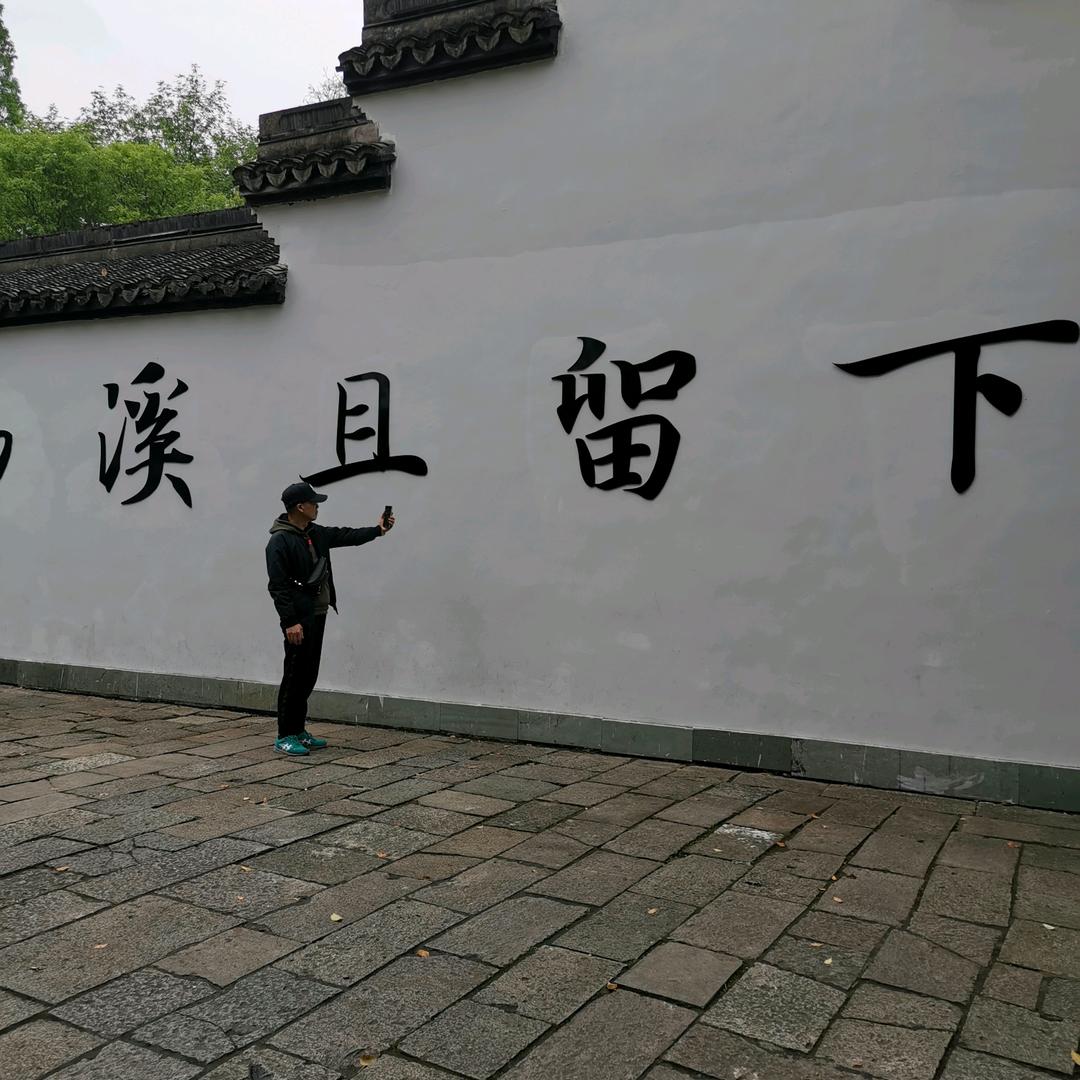 溪且留下